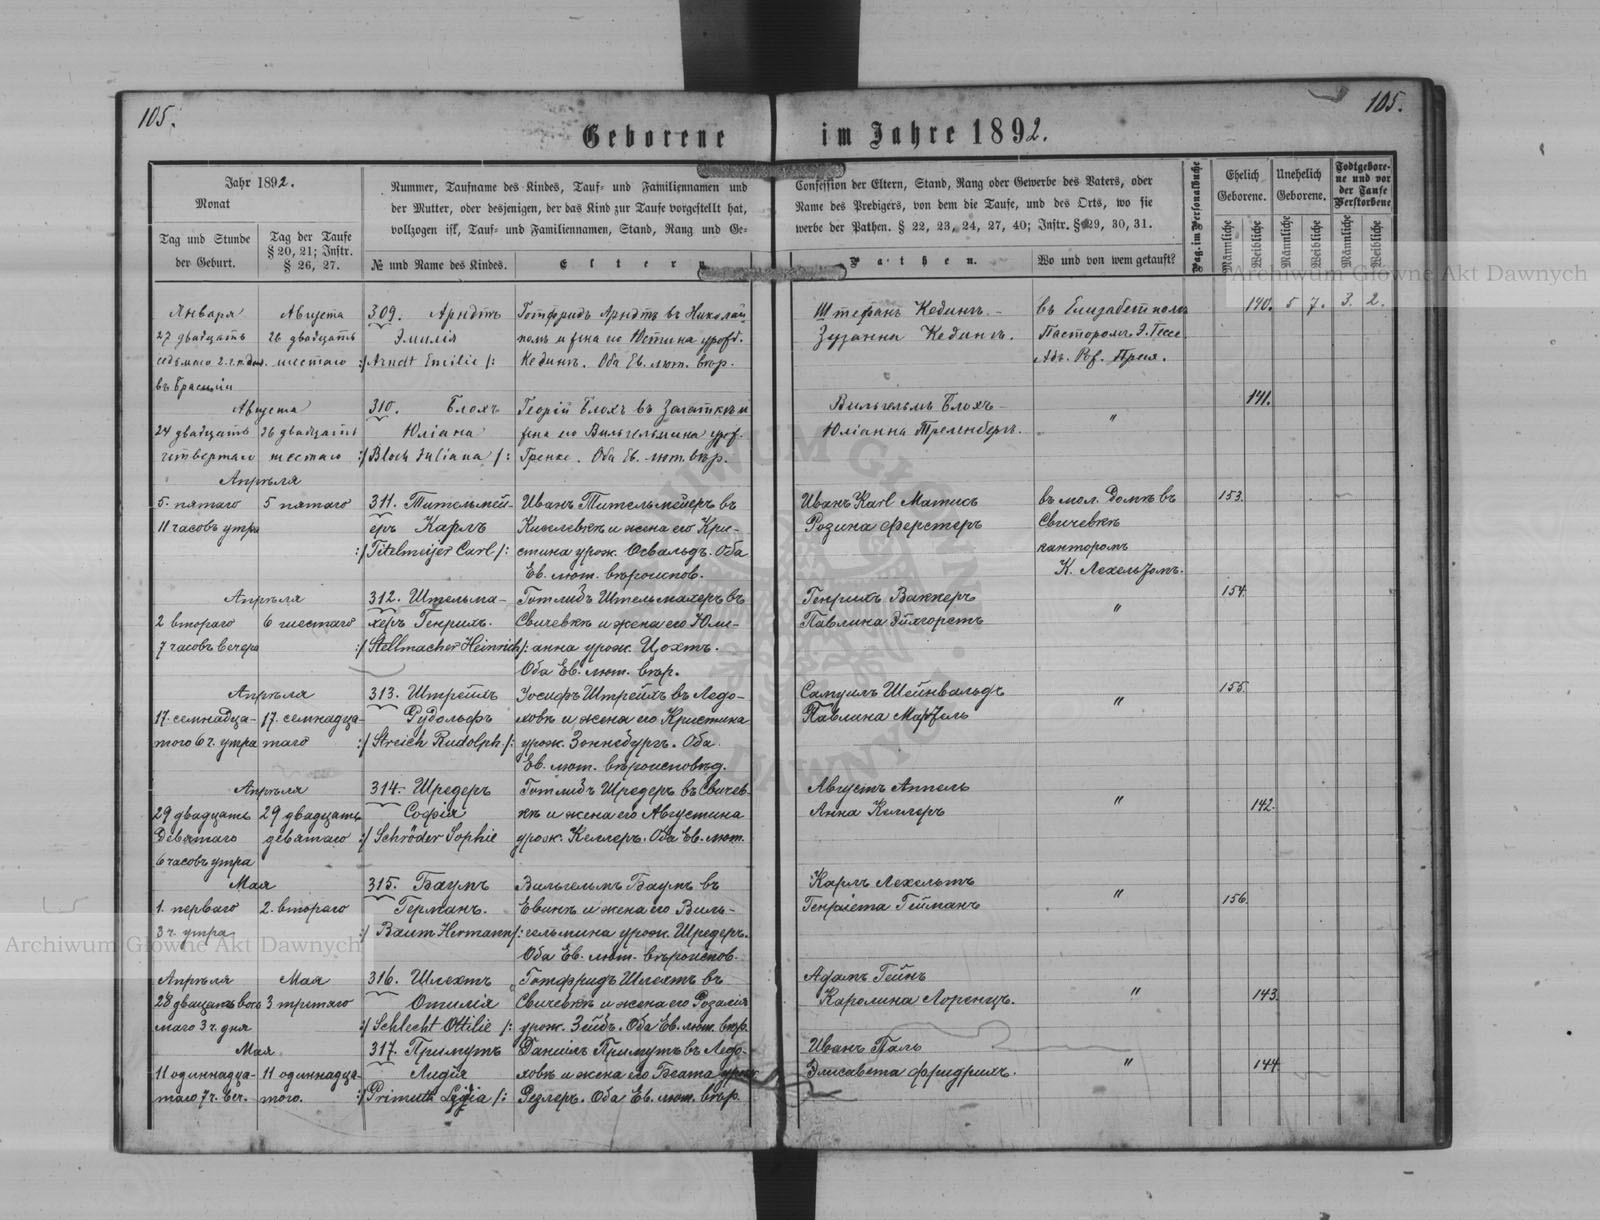 105.
105.
Geborene im Jahre 1892.
Jahr 1892.
Monat
Tag und Stunde der Geburt.
Tag der Taufe § 20, 21; Instr. § 26, 27.
Nummer, Taufname des Kindes, Tauf- und Familiennamen und
der Mutter, oder desjenigen, der das Kind zur Taufe vorgestellt hat,
vollzogen ist, Tauf- und Familiennamen, Stand, Rang und Ge-
№ und Name des Kindes.
Eltern
Confession der Eltern, Stand, Rang oder Gewerbe des Vaters, oder
Name des Predigers, von dem die Taufe, und des Orts, wo sie
werbe der Pathen. § 22, 23, 24, 27, 40; Instr. § 29, 30, 31.
Pathen.
Wo und von wem getauft?
Pag. im Personalbuche
Ehelich Geborene.
Unehelich Geborene.
Todtgebore-
ne und vor
der Taufe
Verstorbene
Männliche
Weibliche
Männliche
Weibliche
Männliche
Weibliche
Января Августа 309. Арндтъ Готфридъ Арндтъ въ Николай Штефанъ Кединъ. въ Елизабетполѣ 140. 5 7. 3. 2.
27 двадцать 26 двадцать Эмилія полѣ и жена его Юстина урожд. Зузанна Кединъ. Пасторомъ Э. Гессе
седьмаго 2 ч. дня. шестаго :/Arndt Emilie/: Кединъ. Оба Ев. лют. вѣр.
въ Бразиліи
Августа 310. Блохъ Георгій Блохъ въ Вильгельмъ Блохъ 141.
24 двадцать 26 двадцать Юліана жена его Вильгельмина урож. Юліанна "
четвертаго шестаго :/Bloch Juliana/: Гренке. Оба Ев. лют. вѣр.
Апрѣля
5. пятаго 5 пятаго 311. Тительмей- Иванъ Тительмейеръ въ Иванъ Karl Матисъ въ мол. Домѣ въ 153.
11 часовъ утра еръ Карлъ Киселевкѣ и жена его Кри- Розина Ферстеръ Свичевкѣ
:/Titelmeijer Carl/: стина урож. Освальдъ. Оба канторомъ
Ев. лют. вѣроиспов. К. Лехельтомъ.
Апрѣля 312. Штельма- Готлибъ Штельмахеръ въ Генрихъ Ваккеръ 154.
2 втораго 6 шестаго херъ Генрихъ. Свичевкѣ и жена его Юли- Павлина Эйхгорстъ "
7 часовъ вечера :/Stellmacher Heinrich/: анна урож. Цохтъ.
Оба Ев. лют. вѣр.
Апрѣля 313. Штрейхъ Іосифъ Штрейхъ въ Ледо- Самуилъ Шейнвальдъ 155.
17. семнадца- 17. семнадца- Рудольфъ ховкѣ и жена его Кристина Павлина "
таго 6 ч. утра таго :/Streich Rudolph./: урож. Зоннебургъ. Оба
Ев. лют. вѣроисповѣд.
Апрѣля 314. Шредеръ Готлибъ Шредеръ въ Свичев- Августъ Аппель
29 двадцать 29 двадцать Софія кѣ и жена его Августина Анна Келлеръ " 142.
девятаго девятаго :/Schröder Sophie урож. Келлеръ. Оба Ев. лют.
6 часовъ утра
Мая 315. Баумъ Вильгельмъ Баумъ въ Карлъ Лехельтъ
1. перваго 2. втораго Германъ. Евинѣ и жена его Виль- Генріета Гейманъ " 156.
3 ч. утра :/Baum Hermann/: гельмина урож. Шредеръ.
Оба Ев. лют. вѣроиспов.
Апрѣля Мая 316. Шлехтъ Готфридъ Шлехтъ въ Адамъ Гейнъ
28 двадцать вось- 3 третяго Отилія Свичевкѣ и жена его Розалія Каролина Лоренцъ. " 143.
маго 3 ч. дня :/Schlecht Ottilie/: урож. Зейбъ. Оба Ев. лют. вѣр.
Мая 317. Примутъ Даніилъ Примутъ въ Ледо- Иванъ Паль
11 одиннадца- 11 одиннадца- Лидія ховкѣ и жена его Беата урож. Элисавета Фридрихъ. " 144
таго 7 ч. веч. таго. :/Primuth Lydia/: Резлеръ. Оба Ев. лют. вѣр.
Archiwum Główne Akt Dawnych
Archiwum Główne Akt Dawnych